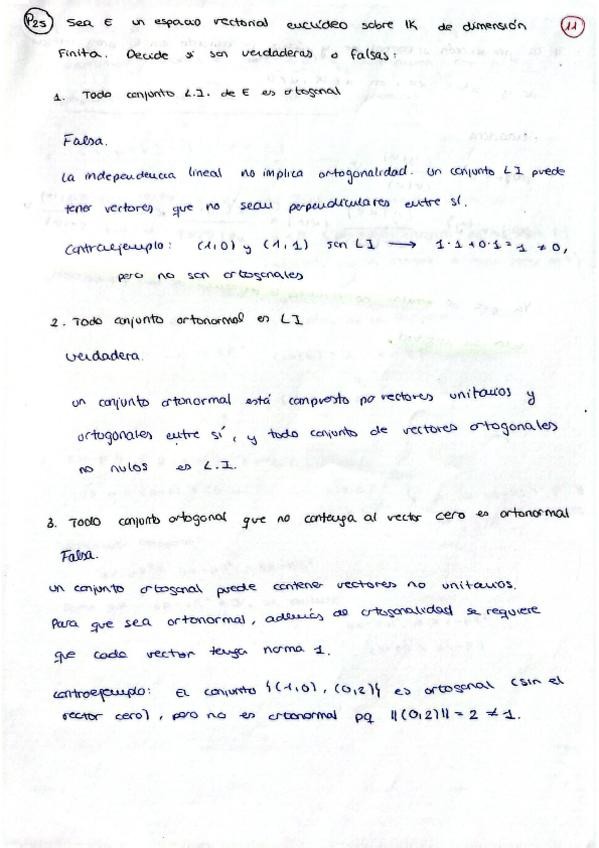 P25 Sea E un espacio vectorial euclídeo sobre IK de dimensión 11
Finita. Decide si son verdaderas o falsas:
1. Todo conjunto L.I. de E es ortogonal
Falsa.
La independencia lineal no implica ortogonalidad. Un conjunto LI puede
tener vectores que no sean perpendiculares entre sí.
Contraejemplo: (1,0) y (1,1) son LI → 1·1+0·1=1≠0,
pero no son ortogonales
2. Todo conjunto ortonormal es LI
Verdadera.
un conjunto ortonormal está compuesto po vectores unitarios y
ortogonales entre sí, y todo conjunto de vectores ortogonales
no nulos es L.I.
3. Todo conjunto ortogonal que no contenga al vector cero es ortonormal
Falsa.
un conjunto ortogonal puede contener vectores no unitarios.
Para que sea ortonormal, además de ortogonalidad se requiere
que cada vector tenga norma 1.
contraejemplo: El conjunto {(1,0), (0,2)} es ortogonal (sin el
vector cero), pero no es ortonormal pq ||(0,2)|| = 2 ≠ 1.